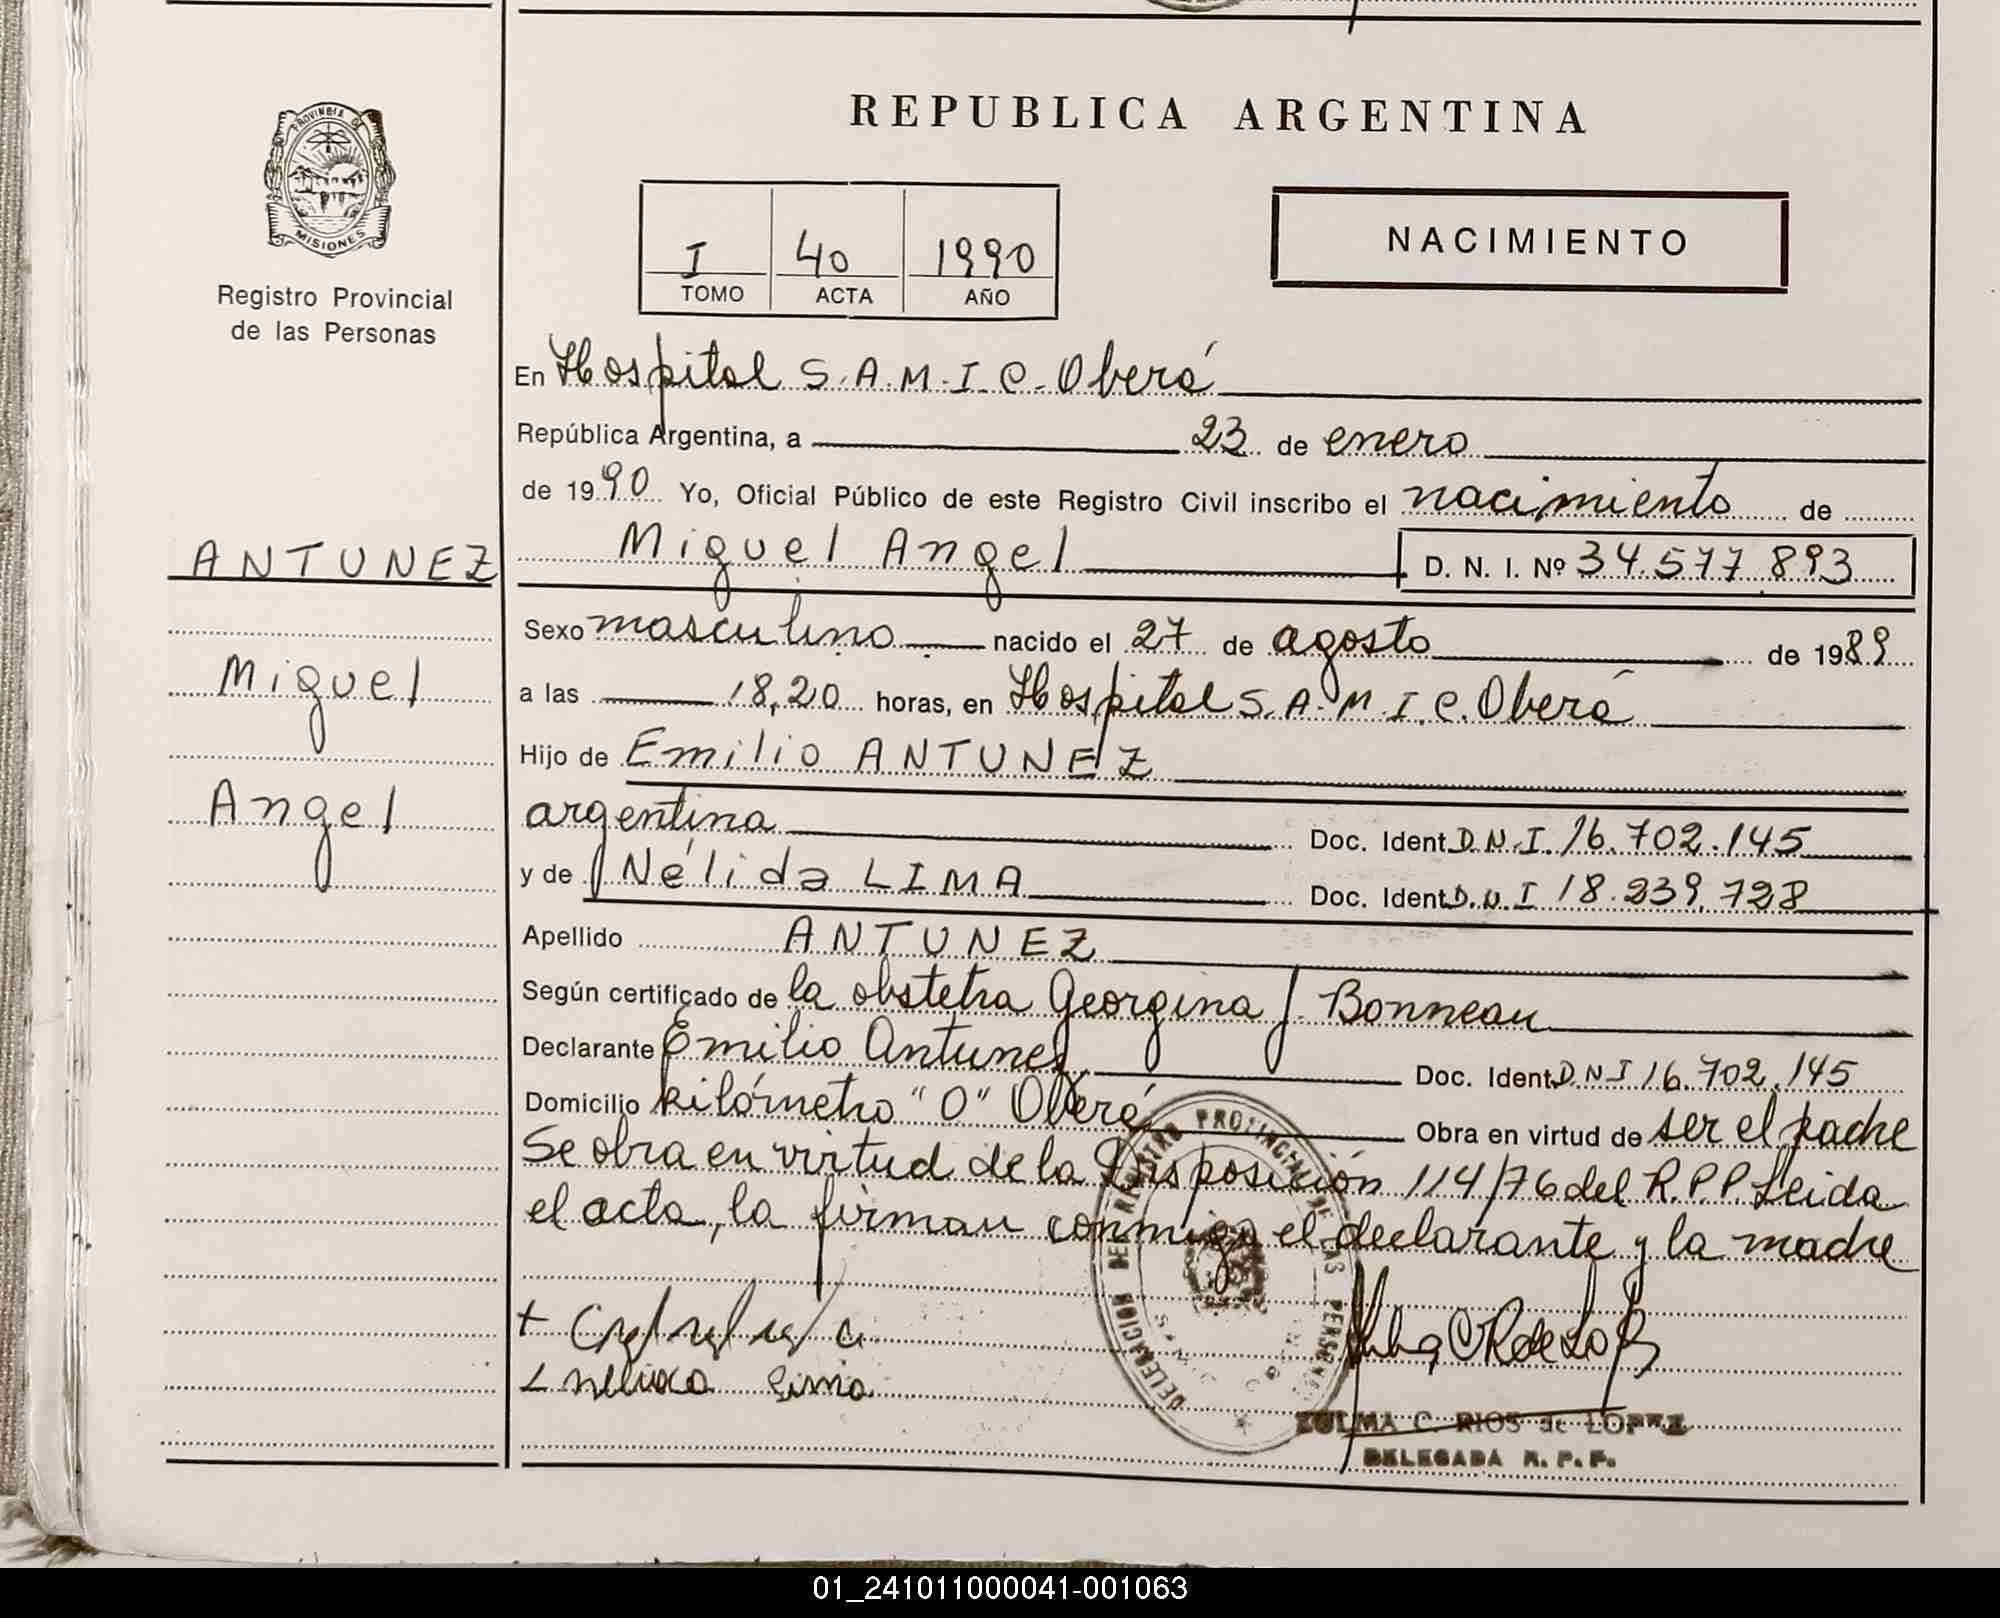 REPUBLICA ARGENTINA
PROVINCIA DE
MISIONES
Registro Provincial
de las Personas
I 40 1990
TOMO ACTA AÑO
NACIMIENTO
En Hospital S.A.M.I.C. Oberá
República Argentina, a 23 de enero
de 1990 Yo, Oficial Público de este Registro Civil inscribo el nacimiento de
ANTUNEZ
Miguel Angel D. N. I. Nº 34.577.893
Sexo masculino nacido el 27 de agosto de 1989
Miguel
a las 18,20 horas, en Hospital S.A.M.I.C. Oberá
Hijo de Emilio ANTUNEZ
Angel
argentina Doc. Ident. D.N.I. 16.702.145
y de Nélida LIMA Doc. Ident. D.N.I 18.239.728
Apellido ANTUNEZ
Según certificado de la obstetra Georgina J. Bonneau
Declarante Emilio Antunez Doc. Ident. D N I 16.702.145
Domicilio kilómetro "0" Oberá Obra en virtud de ser el padre
Se obra en virtud de la Disposición 114/76 del R.P.P. Leida
el acta, la firman conmigo el declarante y la madre
DELEGACION DEL REGISTRO PROVINCIAL DE LAS PERSONAS
ZULMA C. RIOS de LOPEZ
DELEGADA R. P. P.
01_241011000041-001063